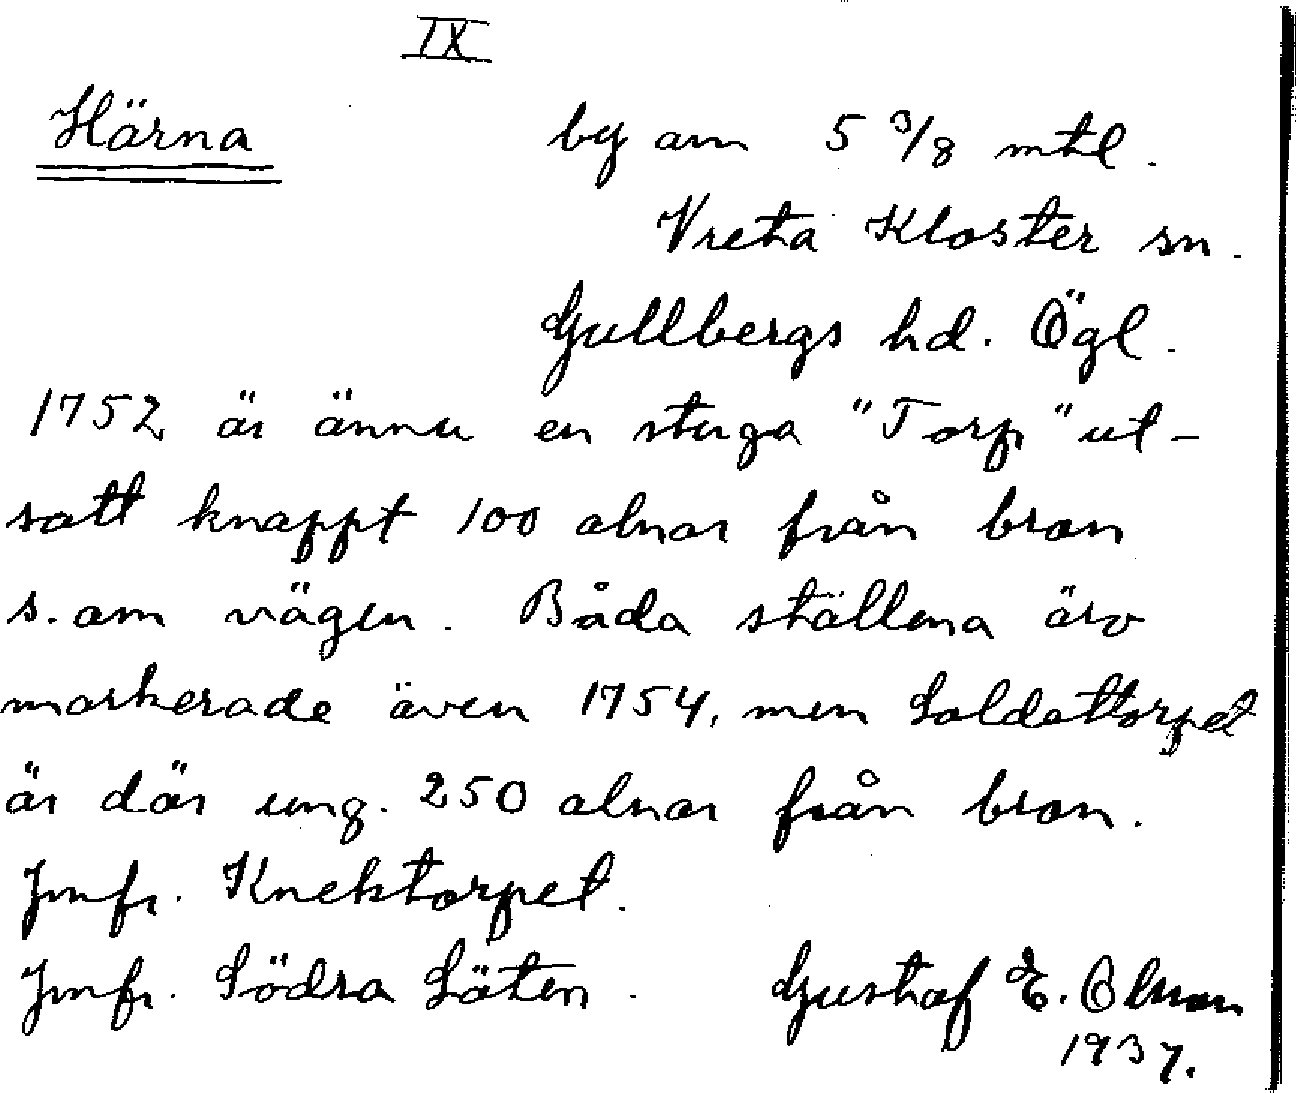 IX
Härna by om 5 3/8 mtl.
Vreta Kloster sn.
Gullbergs hd. Ögl.
1752 är ännu en stuga "Torp" ut-
satt knappt 100 alnar från bron
s. om vägen. Båda ställena äro
markerade även 1754, men Soldattorpet
är där ung. 250 alnar från bron.
Jmfr. Knektorpet.
Jmfr. Södra Säten. Gustaf E. Olsson
1937.